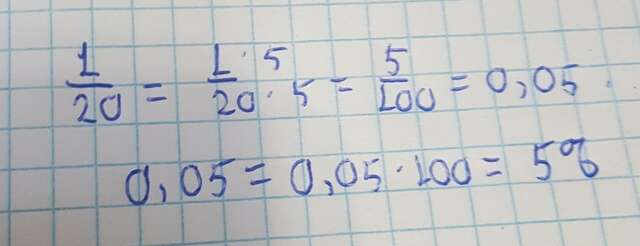 1/20 = 1·5/20·5 = 5/100 = 0,05.
0,05 = 0,05·100 = 5%